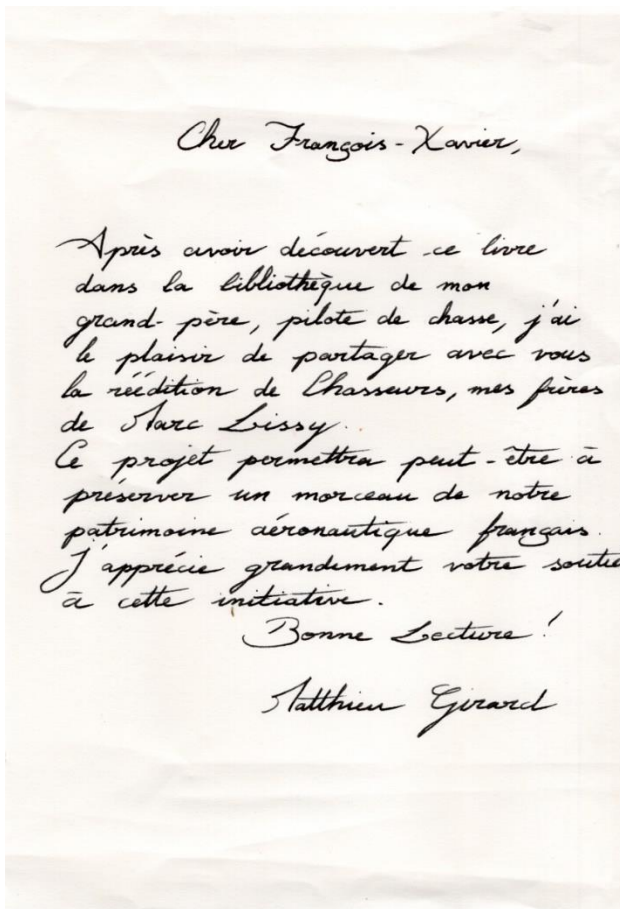 Cher François-Xavier,
Après avoir découvert ce livre
dans la bibliothèque de mon
grand-père, pilote de chasse, j'ai
le plaisir de partager avec vous
la réédition de Chasseurs, mes frères
de Marc Lissy.
Ce projet permettra peut-être à
préserver un morceau de notre
patrimoine aéronautique français.
J'apprécie grandement votre soutie
à cette initiative.
Bonne Lecture !
Matthieu Girard